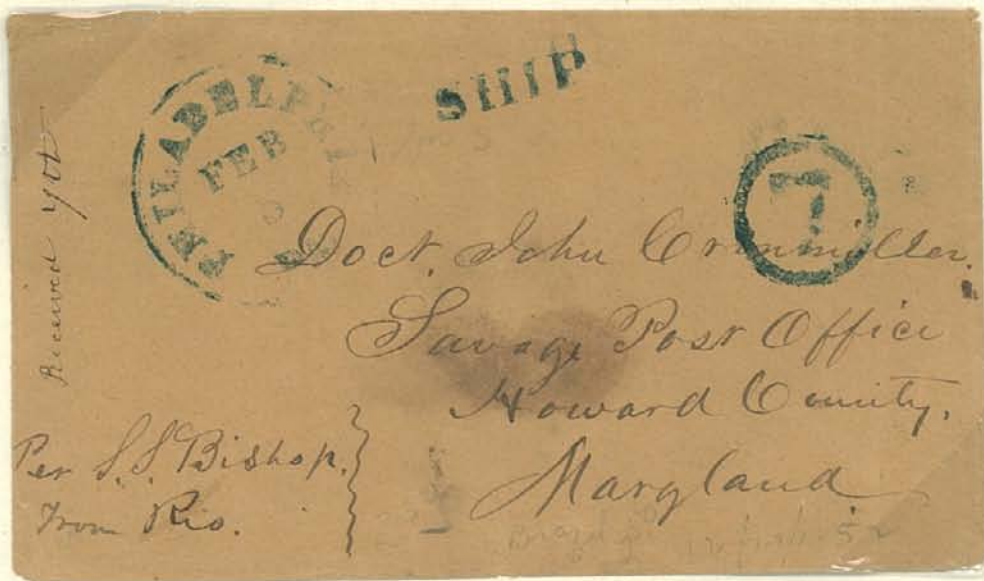 PHILADELPHIA
FEB
SHIP
7
Received 9th
Doct. John Crimmiller.
Savage Post Office
Howard County.
Maryland
Per S.S. Bishop.
From Rio.